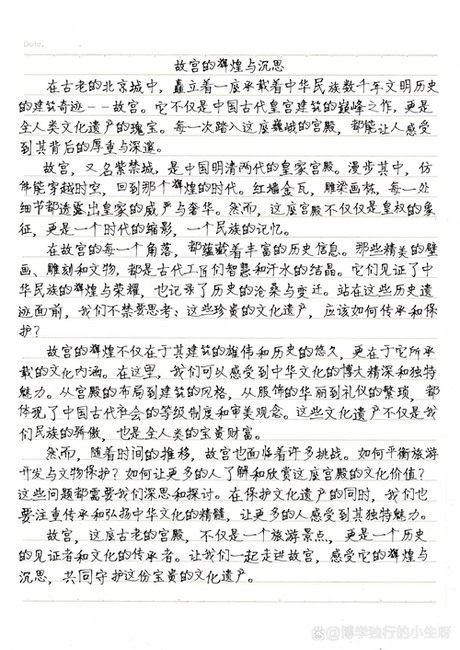 Date.
故宫的辉煌与沉思
在古老的北京城中，矗立着一座承载着中华民族数千年文明历史
的建筑奇迹——故宫。它不仅是中国古代皇宫建筑的巅峰之作，更是
全人类文化遗产的瑰宝。每一次踏入这座巍峨的宫殿，都能让人感受
到其背后的厚重与深邃。
故宫，又名紫禁城，是中国明清两代的皇家宫殿。漫步其中，仿
佛能穿越时空，回到那个辉煌的时代。红墙金瓦，雕梁画栋，每一处
细节都透露出皇家的威严与奢华。然而，这座宫殿不仅仅是皇权的象
征，更是一个时代的缩影，一个民族的记忆。
在故宫的每一个角落，都蕴藏着丰富的历史信息。那些精美的壁
画、雕刻和文物，都是古代工匠们智慧和汗水的结晶。它们见证了中
华民族的辉煌与荣耀，也记录了历史的沧桑与变迁。站在这些历史遗
迹面前，我们不禁要思考：这些珍贵的文化遗产，应该如何传承和保
护？
故宫的辉煌不仅在于其建筑的雄伟和历史的悠久，更在于它所承
载的文化内涵。在这里，我们可以感受到中华文化的博大精深和独特
魅力。从宫殿的布局到建筑的风格，从服饰的华丽到礼仪的繁琐，都
体现了中国古代社会的等级制度和审美观念。这些文化遗产不仅是我
们民族的骄傲，也是全人类的宝贵财富。
然而，随着时间的推移，故宫也面临着许多挑战。如何平衡旅游
开发与文物保护？如何让更多的人了解和欣赏这座宫殿的文化价值？
这些问题都需要我们深思和探讨。在保护文化遗产的同时，我们也
要注重传承和弘扬中华文化的精髓，让更多的人感受到其独特魅力。
故宫，这座古老的宫殿，不仅是一个旅游景点，更是一个历史
的见证者和文化的传承者。让我们一起走进故宫，感受它的辉煌与
沉思，共同守护这份宝贵的文化遗产。
@博学独行的小生呀